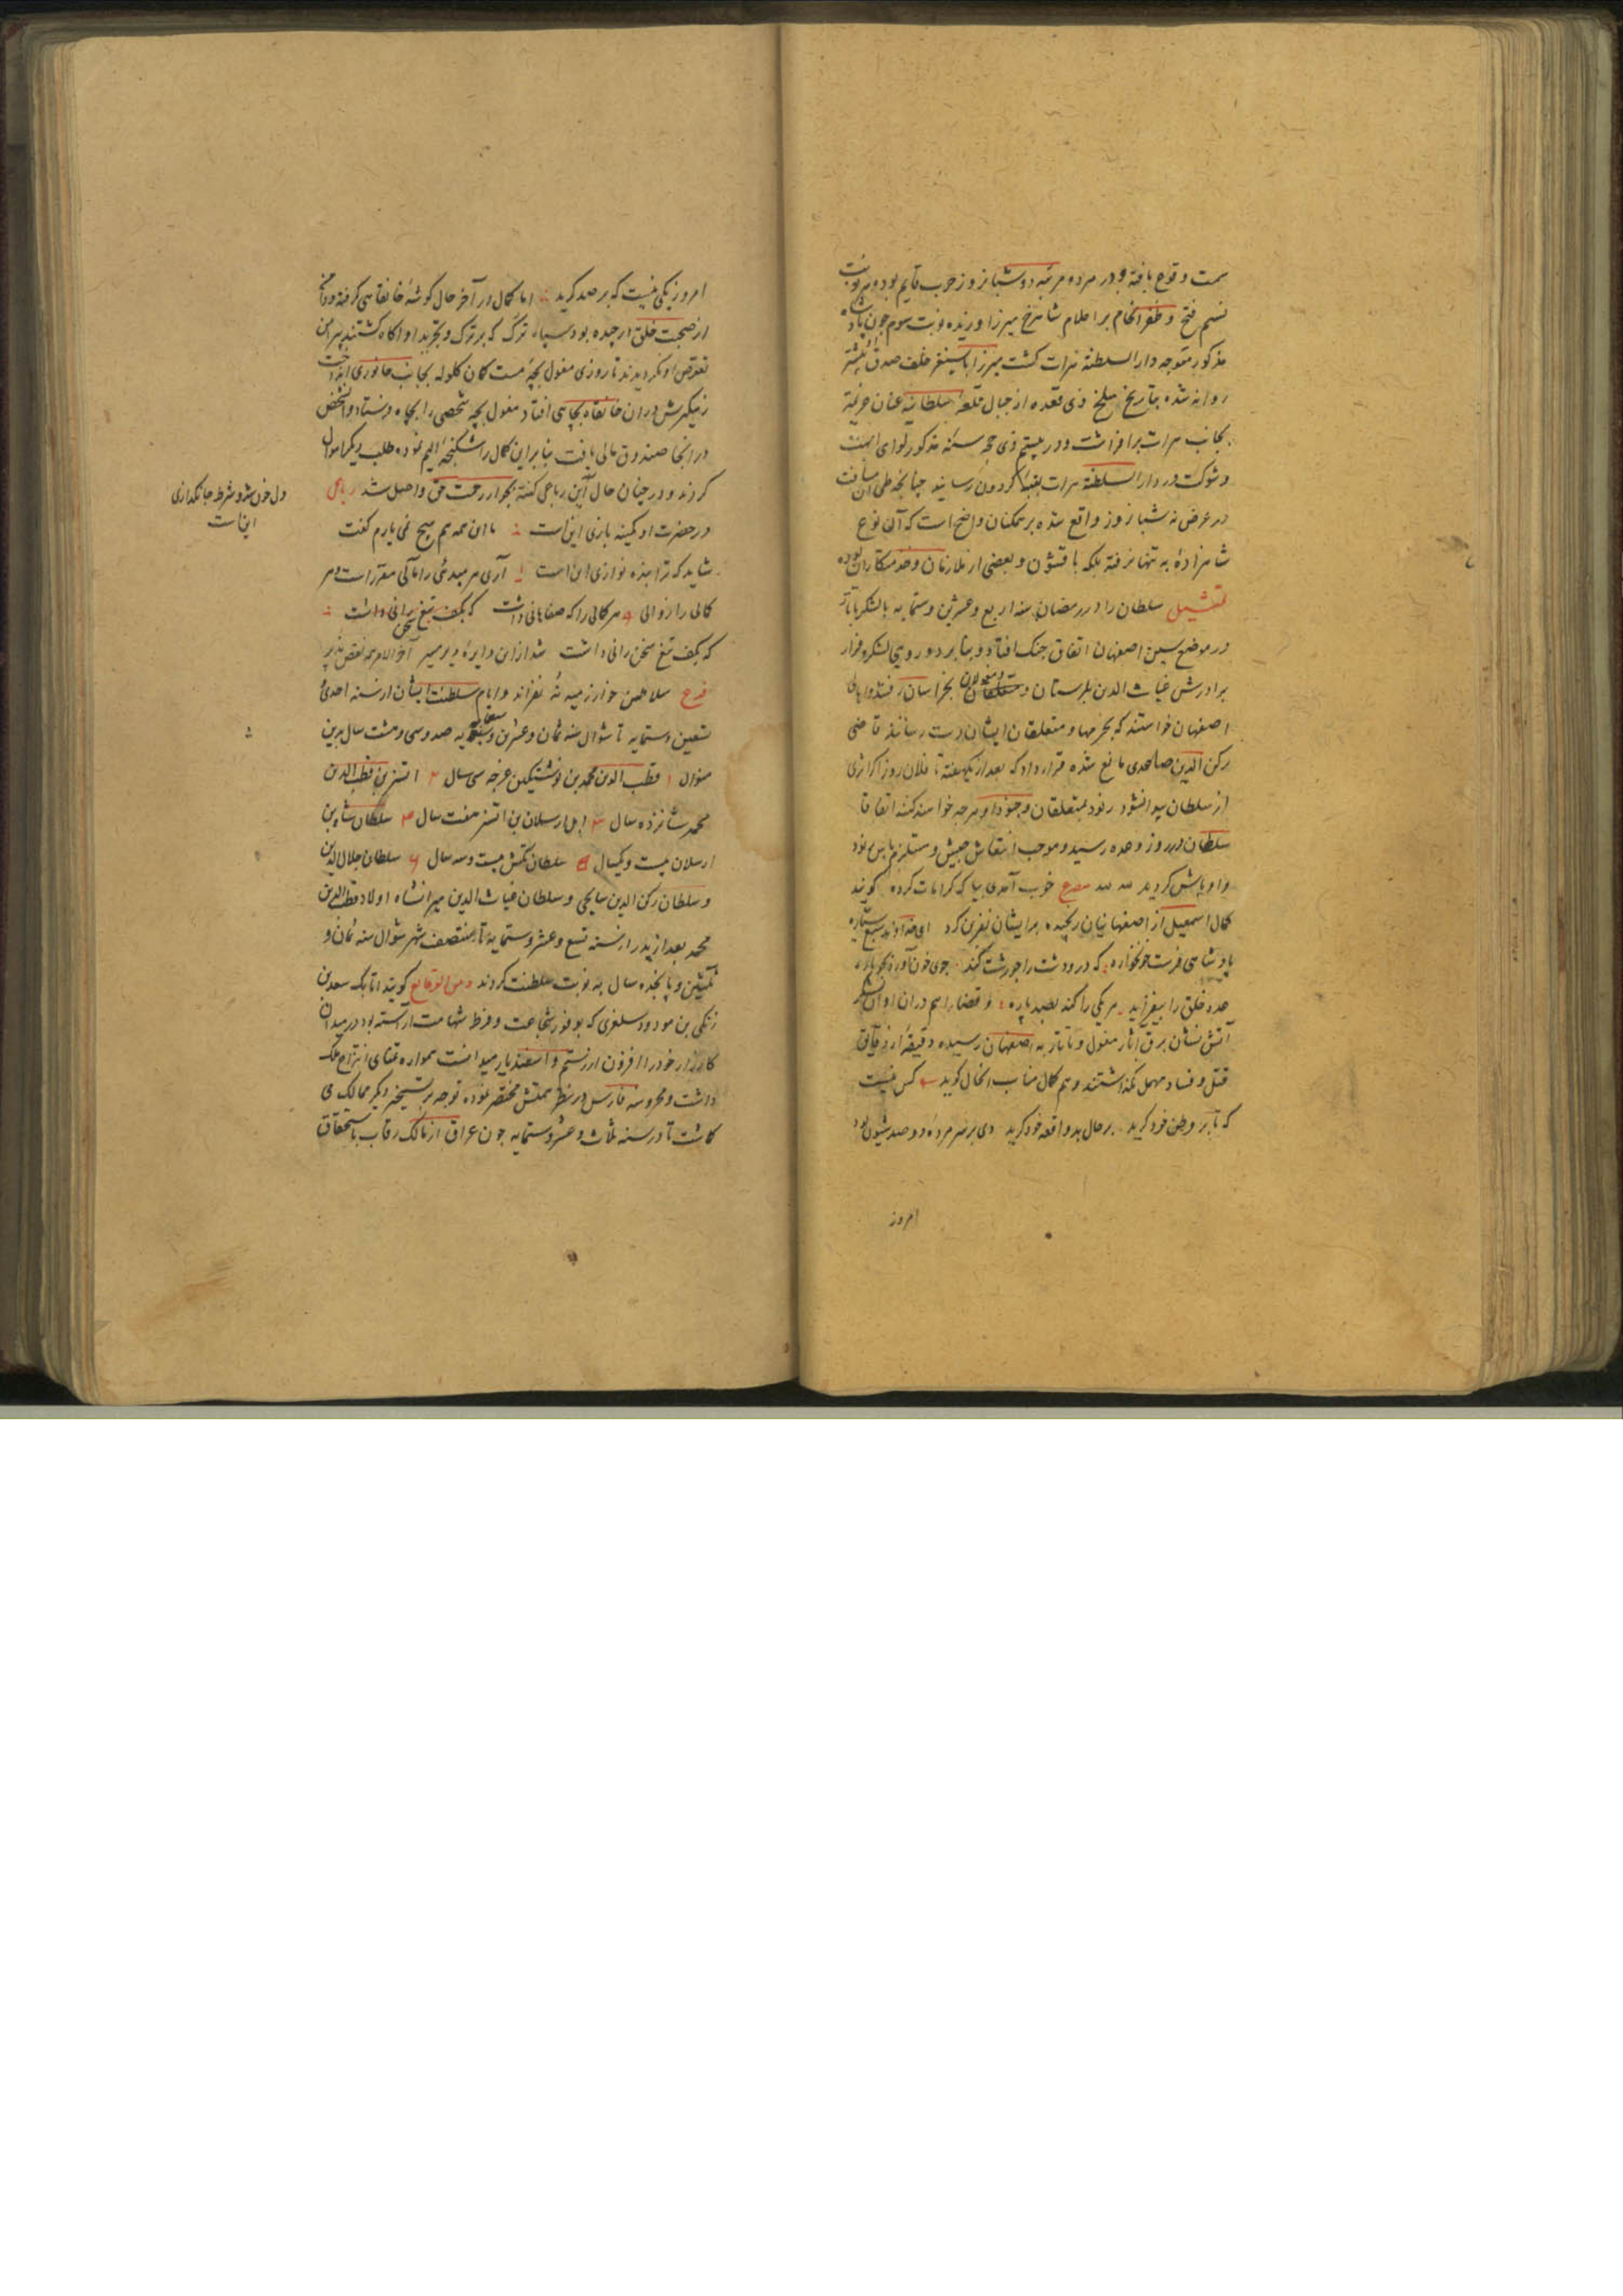 سمت وقوع یافته و در هر ده مرتبه دو شبانروز حرب قایم بوده هر نوبت
نسیم فتح و ظفر انجام بر اعلام شاهرخ میرزا وزیده نوبت سوم چون پادشاه
مذکور متوجه دار السلطنة هرات کشت میرزا بایسنغر خلف صدق پیشتر
روانه شده بتاریخ سلخ ذی قعده از جبال قلعهٔ سلطانیه عنان عزیمة
بجانب هرات برافراشت و در بیستم ذی حجه سنهٔ مذکور لوای ابهت
و شوکت در دار السلطنة هرات بقبهٔ کردون رسانید چنانچه طی آن مسافت
در عرض نه شبانروز واقع شده بر همکنان واضح است که آن نوع
شاهزادهٔ به تنها نرفته بلکه با قشون و بعضی از ملازمان و خدمتکاران بوده
تمثیل سلطان را در رمضان سنه اربع و عشرین و ستمایه با لشکر تاتار
در موضع سین اصفهان اتفاق جنک افتاد و بنابر دو رویی لشکر و فرار
برادرش غیاث الدین بلرستان و بخراسان رفتند و اهالی
اصفهان خواستند که بحرمها و متعلقان ایشان دست رسانند قاضی
رکن الدین صاعدی مانع شده قرار داد که بعد از یکهفته تا فلان روز اکر اثری
از سلطان پیدا نشود رنود بمتعلقان و جنود او هر چه خواهند کنند اتفاقا
سلطان در روز وعده رسید و موجب انتعاش جیش و مستلزم یاس رنود
و اوباش کردید لله لله مصرع خوب آمدی بیا که کرامات کرده کویند
کمال اسمعیل از اصفهانیان رنجیده بر ایشان نفرین کرد ای خداوند سبع سیاره
پادشاهی فرست خونخواره که در و دشت را چو دشت کند جوی خون آورد بجوباره
عدد خلق را بیفزاید هر یکی را کند بصد پاره و قضا را هم دران اوان لشکر
آتش نشان برق آثار مغول و تاتار به اصفهان رسیده دقیقهٔ از دقایق
قتل و فساد مهمل نکذاشتند و هم کمال مناسب انحال کوید کس نیست
که تا بر وطن خود کرید بر حال بد واقعه خود کرید دی بر سر مردهٔ دو صد شیون بود
امروز
امروز یکی نیست که بر صد کرید اما کمال در آخر حال کوشهٔ خانقاهی کرفته و دامن
از صحبت خلق درچیده بود سپاه ترک که بر ترک و تجرید او اکاه کشتند پیرامن
تعرض او نکردیدند تا روزی مغول بچهٔ مست کمان کلوله بجانب جانوری انداخت
زهکیرش در ان خانقاه بچاهی افتاد مغول بچه شخصی را بچاه فرستاد و آن شخص
در انجا صندوق مالی یافت بنا بر این کمال را شکنجهٔ الیم نموده طلب دیکر اموال
کردند و در چنان حال این رباعی کفته بجوار رحمت حق واصل شد رباعی
دل خون شد و شرط جانکدازی
این است
در حضرت او کمینه بازی این است با این همه هم هیچ نمی یارم کفت
شاید که ترا بنده نوازی این است آری هر مبدئی را مآلی مقرر است و هر
کمالی را زوالی هر کمالی را که صفاهانی داشت که بکف تیغ سخن رانی داشت
که بکف تیغ سخن رانی داشت شد ازاین دایرهٔ دیر مسیر آخر الامر همه نقص پذیر
فرع سلاطین خوارزمیه نهٔ نفراند و ایام سلطنت ایشان از سنه احدی
تسعین و ستمایه تا شوال سنه ثمان و عشرین و صد و سی و هشت سال برین
منوال ۱ قطب الدین محمد بن نوشتیکین غرجه سی سال ۲ اتسز بن قطب الدین
محمد شانزده سال ۳ ایل ارسلان بن اتسز هفت سال ۴ سلطان شاه بن
ارسلان بیست و یکسال ۵ سلطان تکش بیست و سه سال ۶ سلطان جلال الدین
و سلطان رکن الدین سایجی و سلطان غیاث الدین میرانشاه اولاد قطب الدین
محمد بعد از پدر از سنه تسع و عشر و ستمایه تا منتصف شهر شوال سنه ثمان و
ثلثین و پانجده سال به نوبت سلطنت کردند و من الوقایع کویند اتابک سعد بن
زنکی بن مودود سلغری که بوفور شجاعت و فرط شهامت آراسته بود در میدان
کارزار خود را افزون از رستم و اسفندیار میدانست همواره تمنای انتزاع ملک
داشت و محروسه فارس در نظر همتش مختصر نموده توجه بر تسخیر دیکر ممالک می
کماشت تا در سنه ثلاث و عشر و ستمایه چون عراق از مالک رقاب باستحقاق